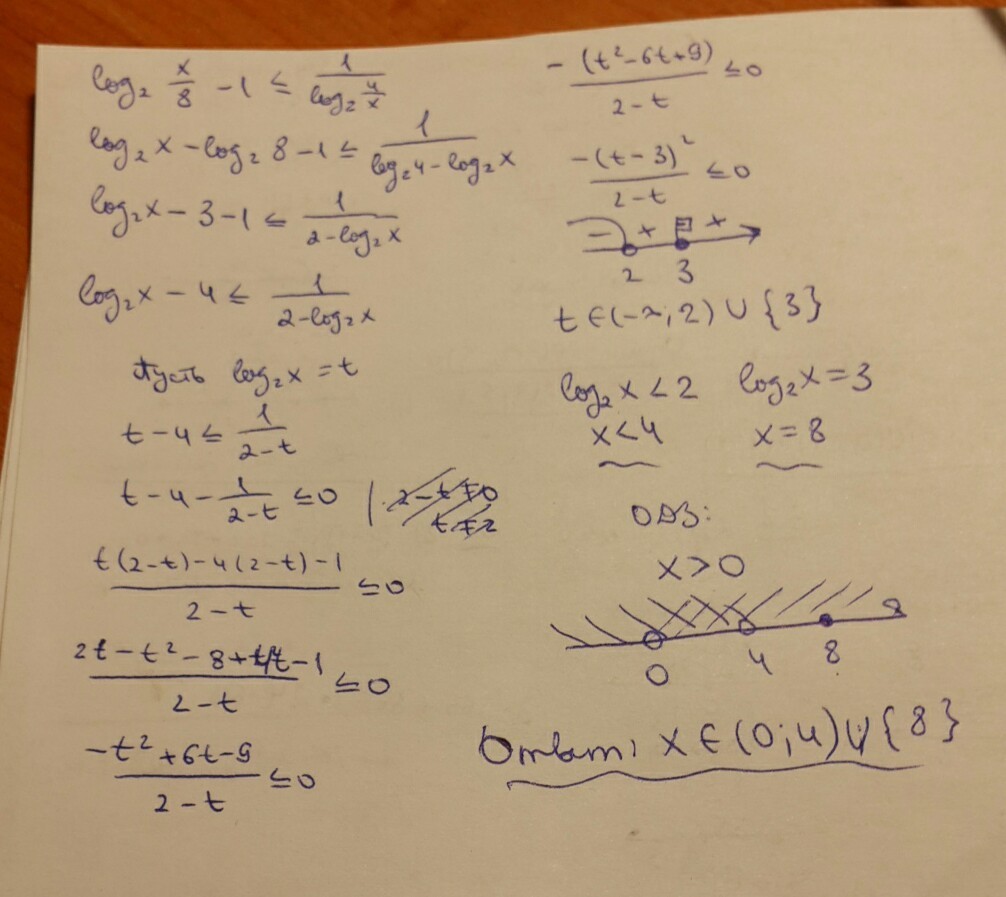 log₂ x/8 - 1 ≤ 1/(log₂ 4/x)
log₂ x - log₂ 8 - 1 ≤ 1/(log₂ 4 - log₂ x)
log₂ x - 3 - 1 ≤ 1/(2 - log₂ x)
log₂ x - 4 ≤ 1/(2 - log₂ x)
Пусть log₂ x = t
t - 4 ≤ 1/(2 - t)
t - 4 - 1/(2 - t) ≤ 0 | 2 - t ≠ 0
t ≠ 2
(t(2 - t) - 4(2 - t) - 1)/(2 - t) ≤ 0
(2t - t² - 8 + 4t - 1)/(2 - t) ≤ 0
(-t² + 6t - 9)/(2 - t) ≤ 0
-(t² - 6t + 9)/(2 - t) ≤ 0
-(t - 3)²/(2 - t) ≤ 0
- + +
2 3
t ∈ (-∞; 2) ∪ {3}
log₂ x < 2 log₂ x = 3
x < 4 x = 8
ОДЗ:
x > 0
0 4 8
Ответ: x ∈ (0; 4) ∪ {8}